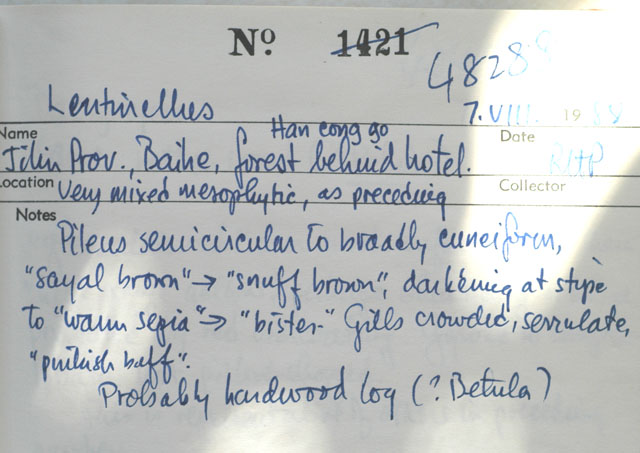 Nº 1421
48288
Lentinellus 7.VIII. 1988
Name Han cong go Date
Jilin Prov., Baihe, forest behind hotel. RHP
Location Very mixed mesophytic, as preceding Collector
Notes
Pileus semicircular to broadly cuneiform,
"sayal brown" → "snuff brown", darkening at stipe
to "warm sepia" → "bister." Gills crowded, serrulate,
"pinkish buff".
Probably hardwood log (? Betula)